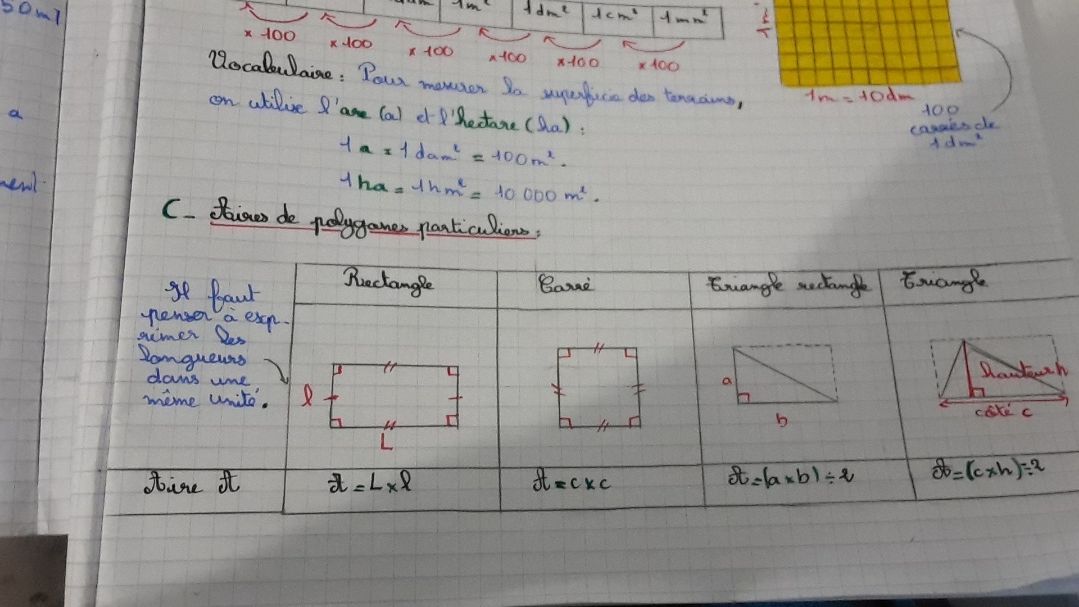 50ml
a
1m²
1dm²
1cm²
1mm²
x 100
x 100
x 100
x 100
x 100
x 100
1m = 10dm
100
carrés de
1dm²
Vocabulaire : Pour mesurer la superficie des terrains,
on utilise l'are (a) et l'hectare (ha) :
1a = 1dam² = 100m².
1ha = 1hm² = 10 000 m².
C- Aires de polygones particuliers :
Il faut
penser à exp-
rimer les
longueurs
dans une
même unité.
Rectangle
Carré
Triangle rectangle
Triangle
l
L
a
b
hauteur h
côté c
Aire A
A = L x l
A = c x c
A = (a x b) ÷ 2
A = (c x h) ÷ 2